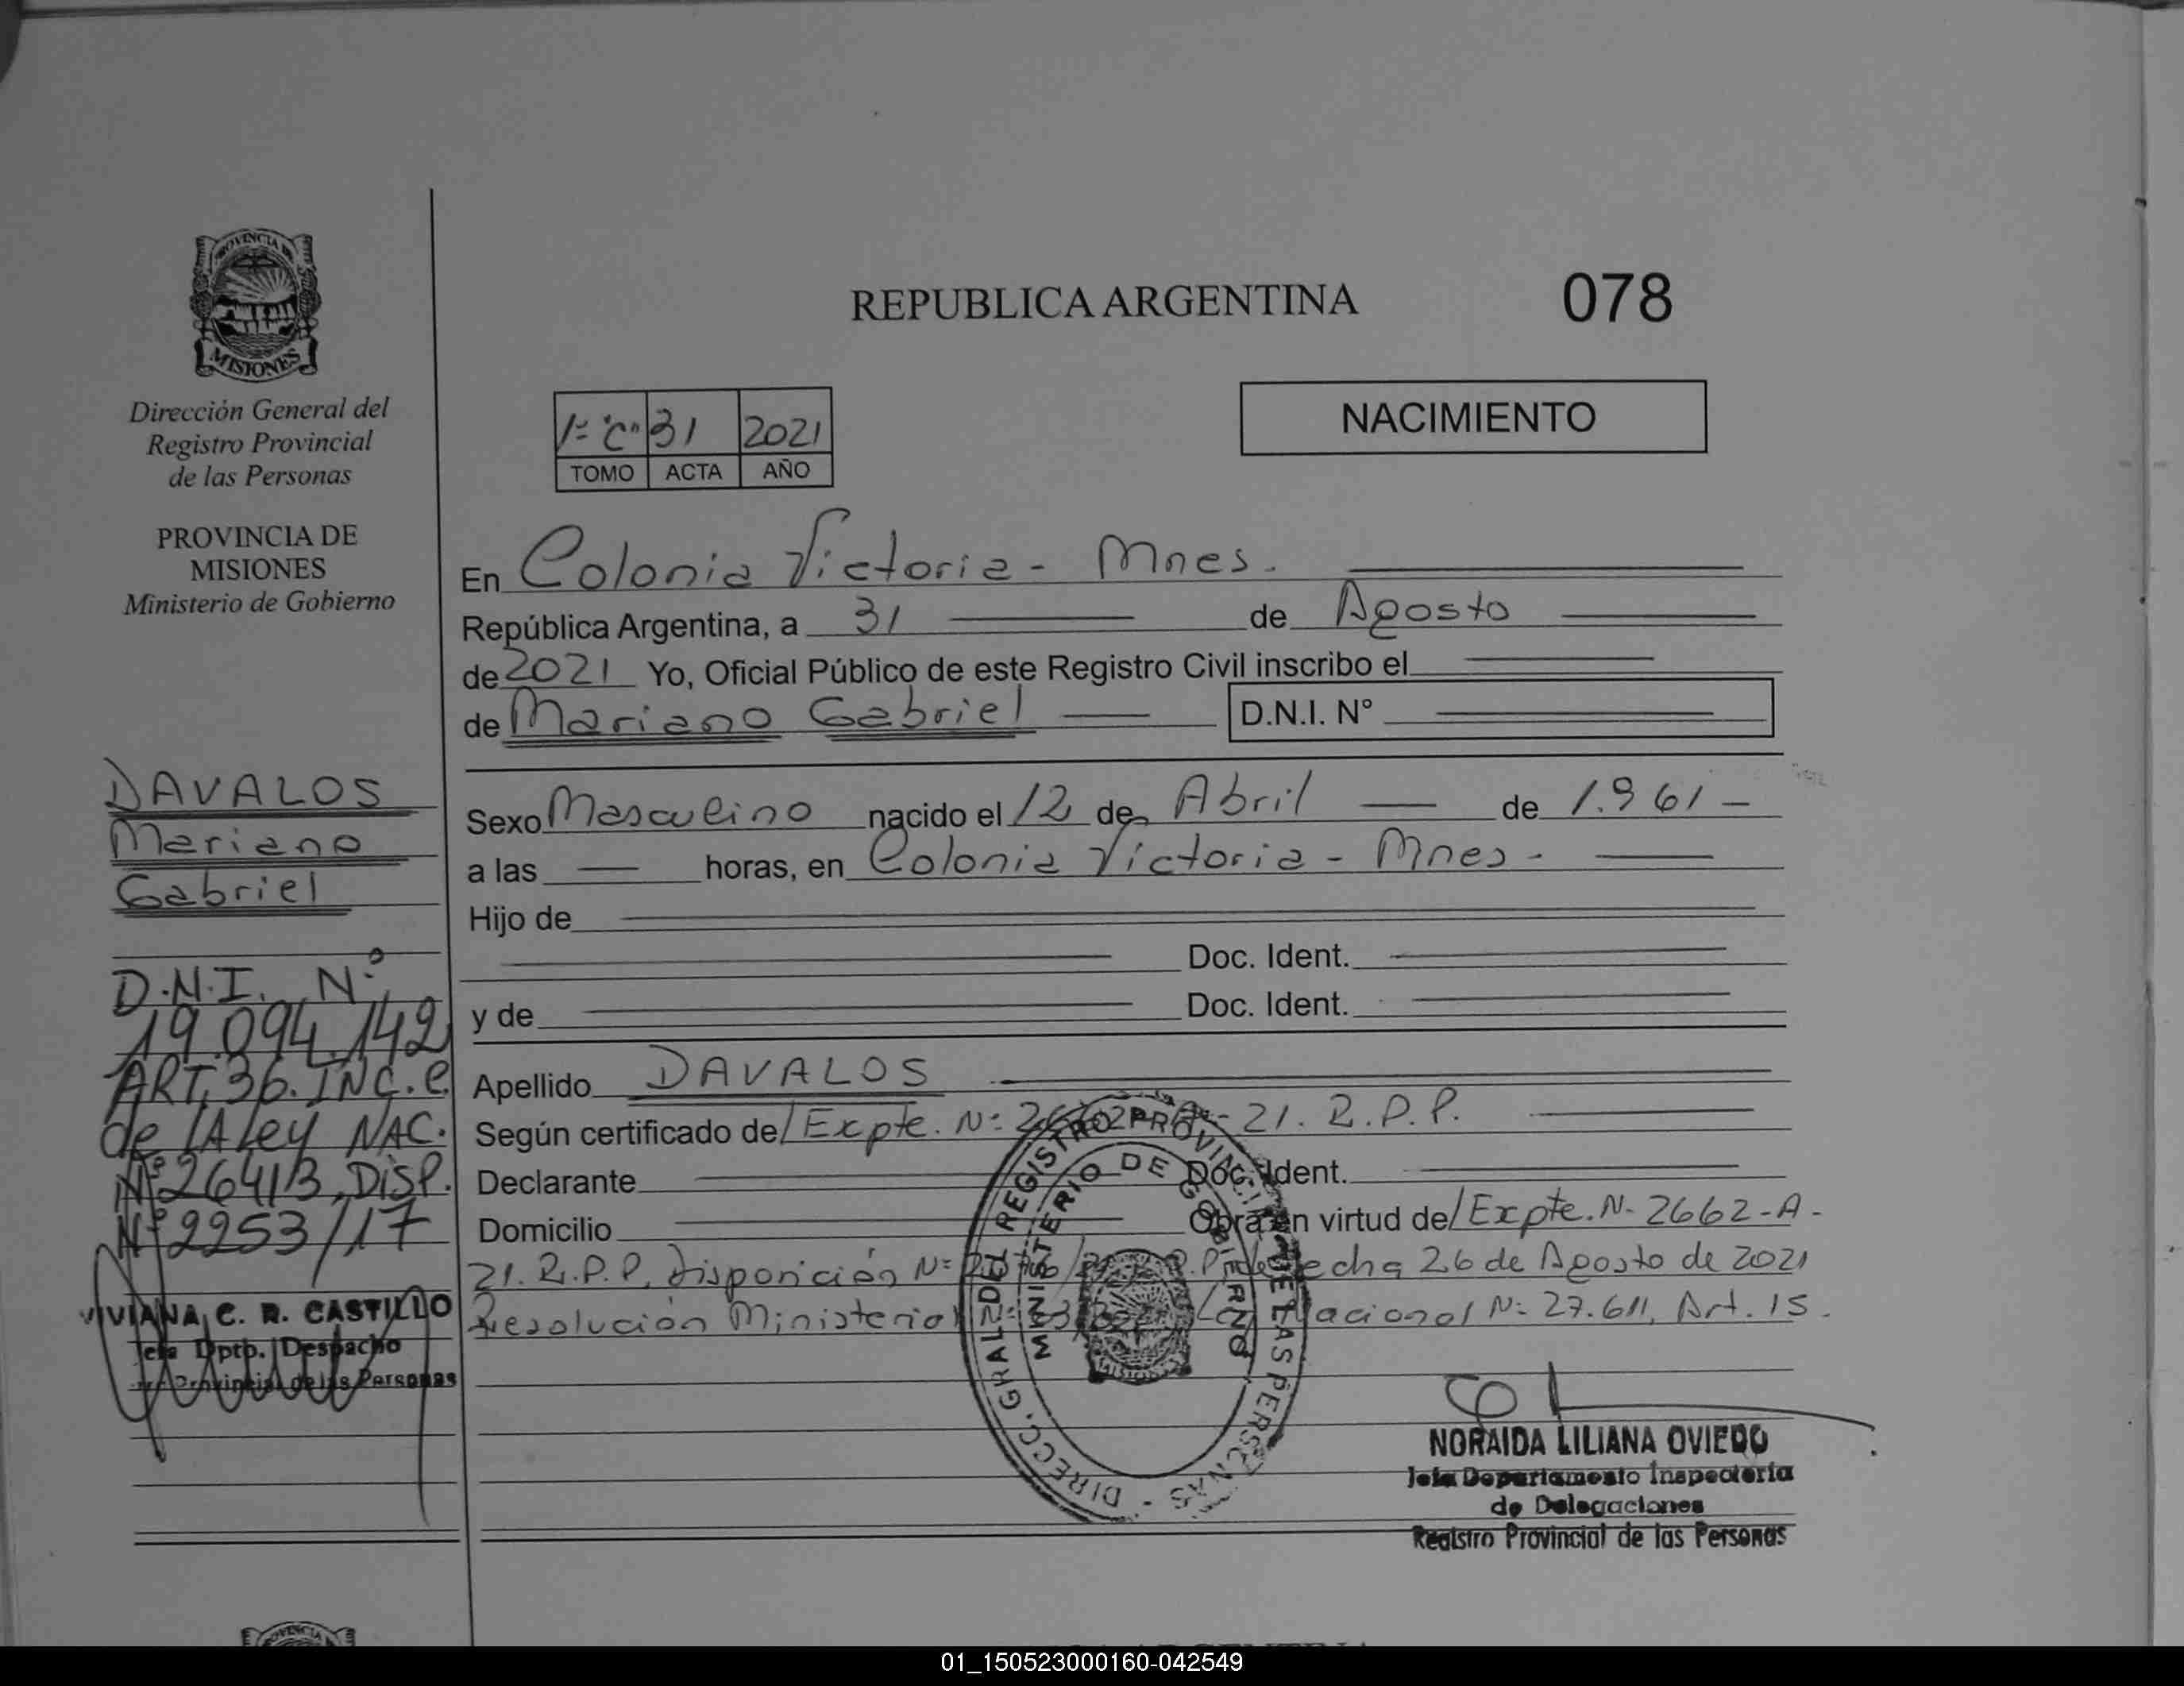 PROVINCIA DE
MISIONES
Dirección General del
Registro Provincial
de las Personas
PROVINCIA DE
MISIONES
Ministerio de Gobierno
DAVALOS
Mariano
Gabriel
D.N.I. Nº
19.094.142
ART. 36. INC. c
de LA Ley NAC.
Nº 26413, DISP.
Nº 2253/17
VIVIANA C. R. CASTILLO
Jefa Dpto. Despacho
Provincial de las Personas
REPUBLICA ARGENTINA
078
1º "C" 31 2021
TOMO ACTA AÑO
NACIMIENTO
En Colonia Victoria - Mnes.
República Argentina, a 31 de Agosto
de 2021 Yo, Oficial Público de este Registro Civil inscribo el
de Mariano Gabriel D.N.I. N°
Sexo Masculino nacido el 12 de Abril de 1.961 -
a las horas, en Colonia Victoria - Mnes -
Hijo de
Doc. Ident.
y de Doc. Ident.
Apellido DAVALOS
Según certificado de/ Expte. Nº - 21. R.P.P.
Declarante Doc. Ident.
Domicilio Obra en virtud de/ Expte. N- 2662-A-
21. R.P.P. Disposición Nº de fecha 26 de Agosto de 2021
Resolución Ministerial Nacional Nº 27.611, Art. 15.
DIRECC. GRAL. DEL REGISTRO PROVINCIAL DE LAS PERSONAS -
MINISTERIO DE GOBIERNO
NORAIDA LILIANA OVIEDO
Jefa Departamento Inspectoría
de Delegaciones
Registro Provincial de las Personas
01_150523000160-042549